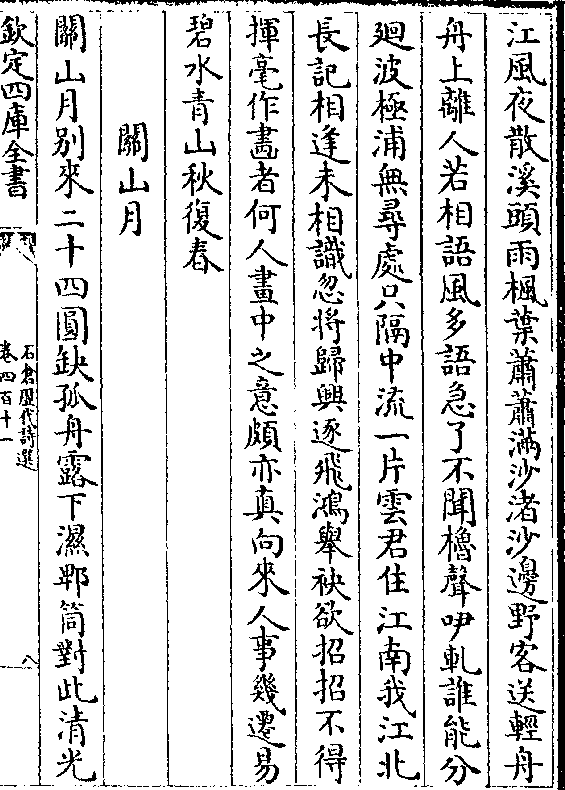 江風夜散溪頭雨楓葉蕭蕭滿沙渚沙邊野客送輕舟
舟上離人若相語風多語急了不聞櫓聲咿軋誰能分
廻波極浦無尋處只隔中流一片雲君住江南我江北
長記相逢未相識忽將歸興逐飛鴻舉袂欲招招不得
揮毫作畫者何人畫中之意頗亦真向來人事幾遷易
碧水青山秋復春
關山月
關山月别來二十四圓缺孤舟露下濕郫筒對此清光
欽定四庫全書
石倉歷代詩選
卷四百十一
八